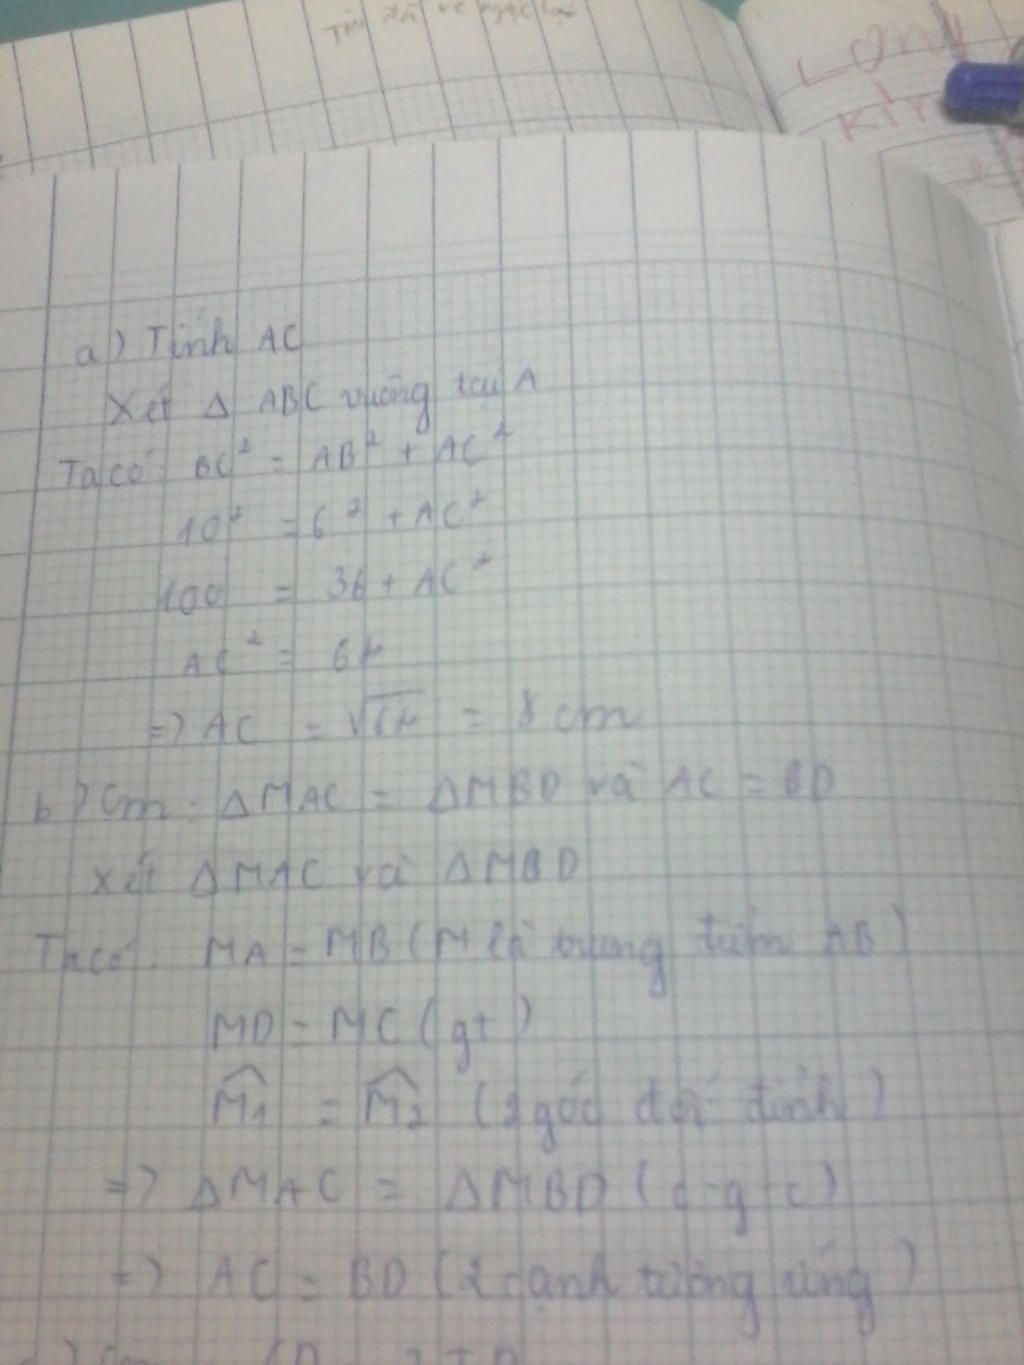 a) Tính AC
Xét Δ ABC vuông tại A
Ta có: BC² = AB² + AC²
10² = 6² + AC²
100 = 36 + AC²
AC² = 64
=> AC = √64 = 8 cm
b) Cm: ΔMAC = ΔMBD và AC = BD
Xét ΔMAC và ΔMBD
Ta có: MA = MB (M là trung điểm AB)
MD = MC (gt)
M̂1 = M̂2 (2 góc đối đỉnh)
=> ΔMAC = ΔMBD (c-g-c)
=> AC = BD (2 cạnh tương ứng)